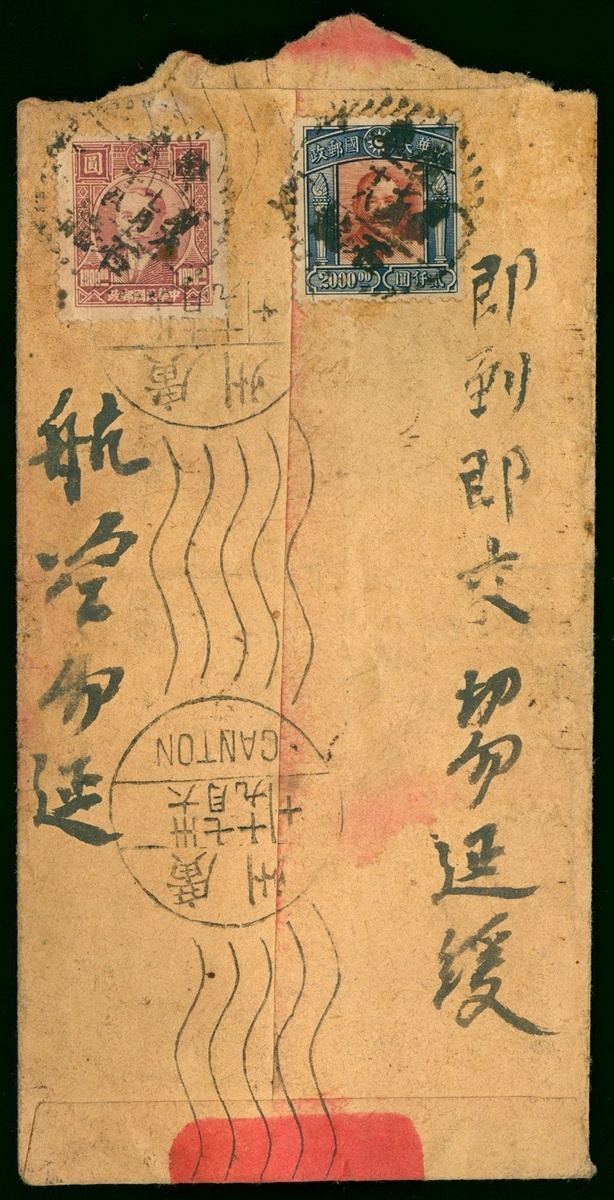 即到即交切勿延緩
航空勿延
政郵國民華中
2000 00
圓仟貳
圓
政郵國民華中
廣州
CANTON
廣州